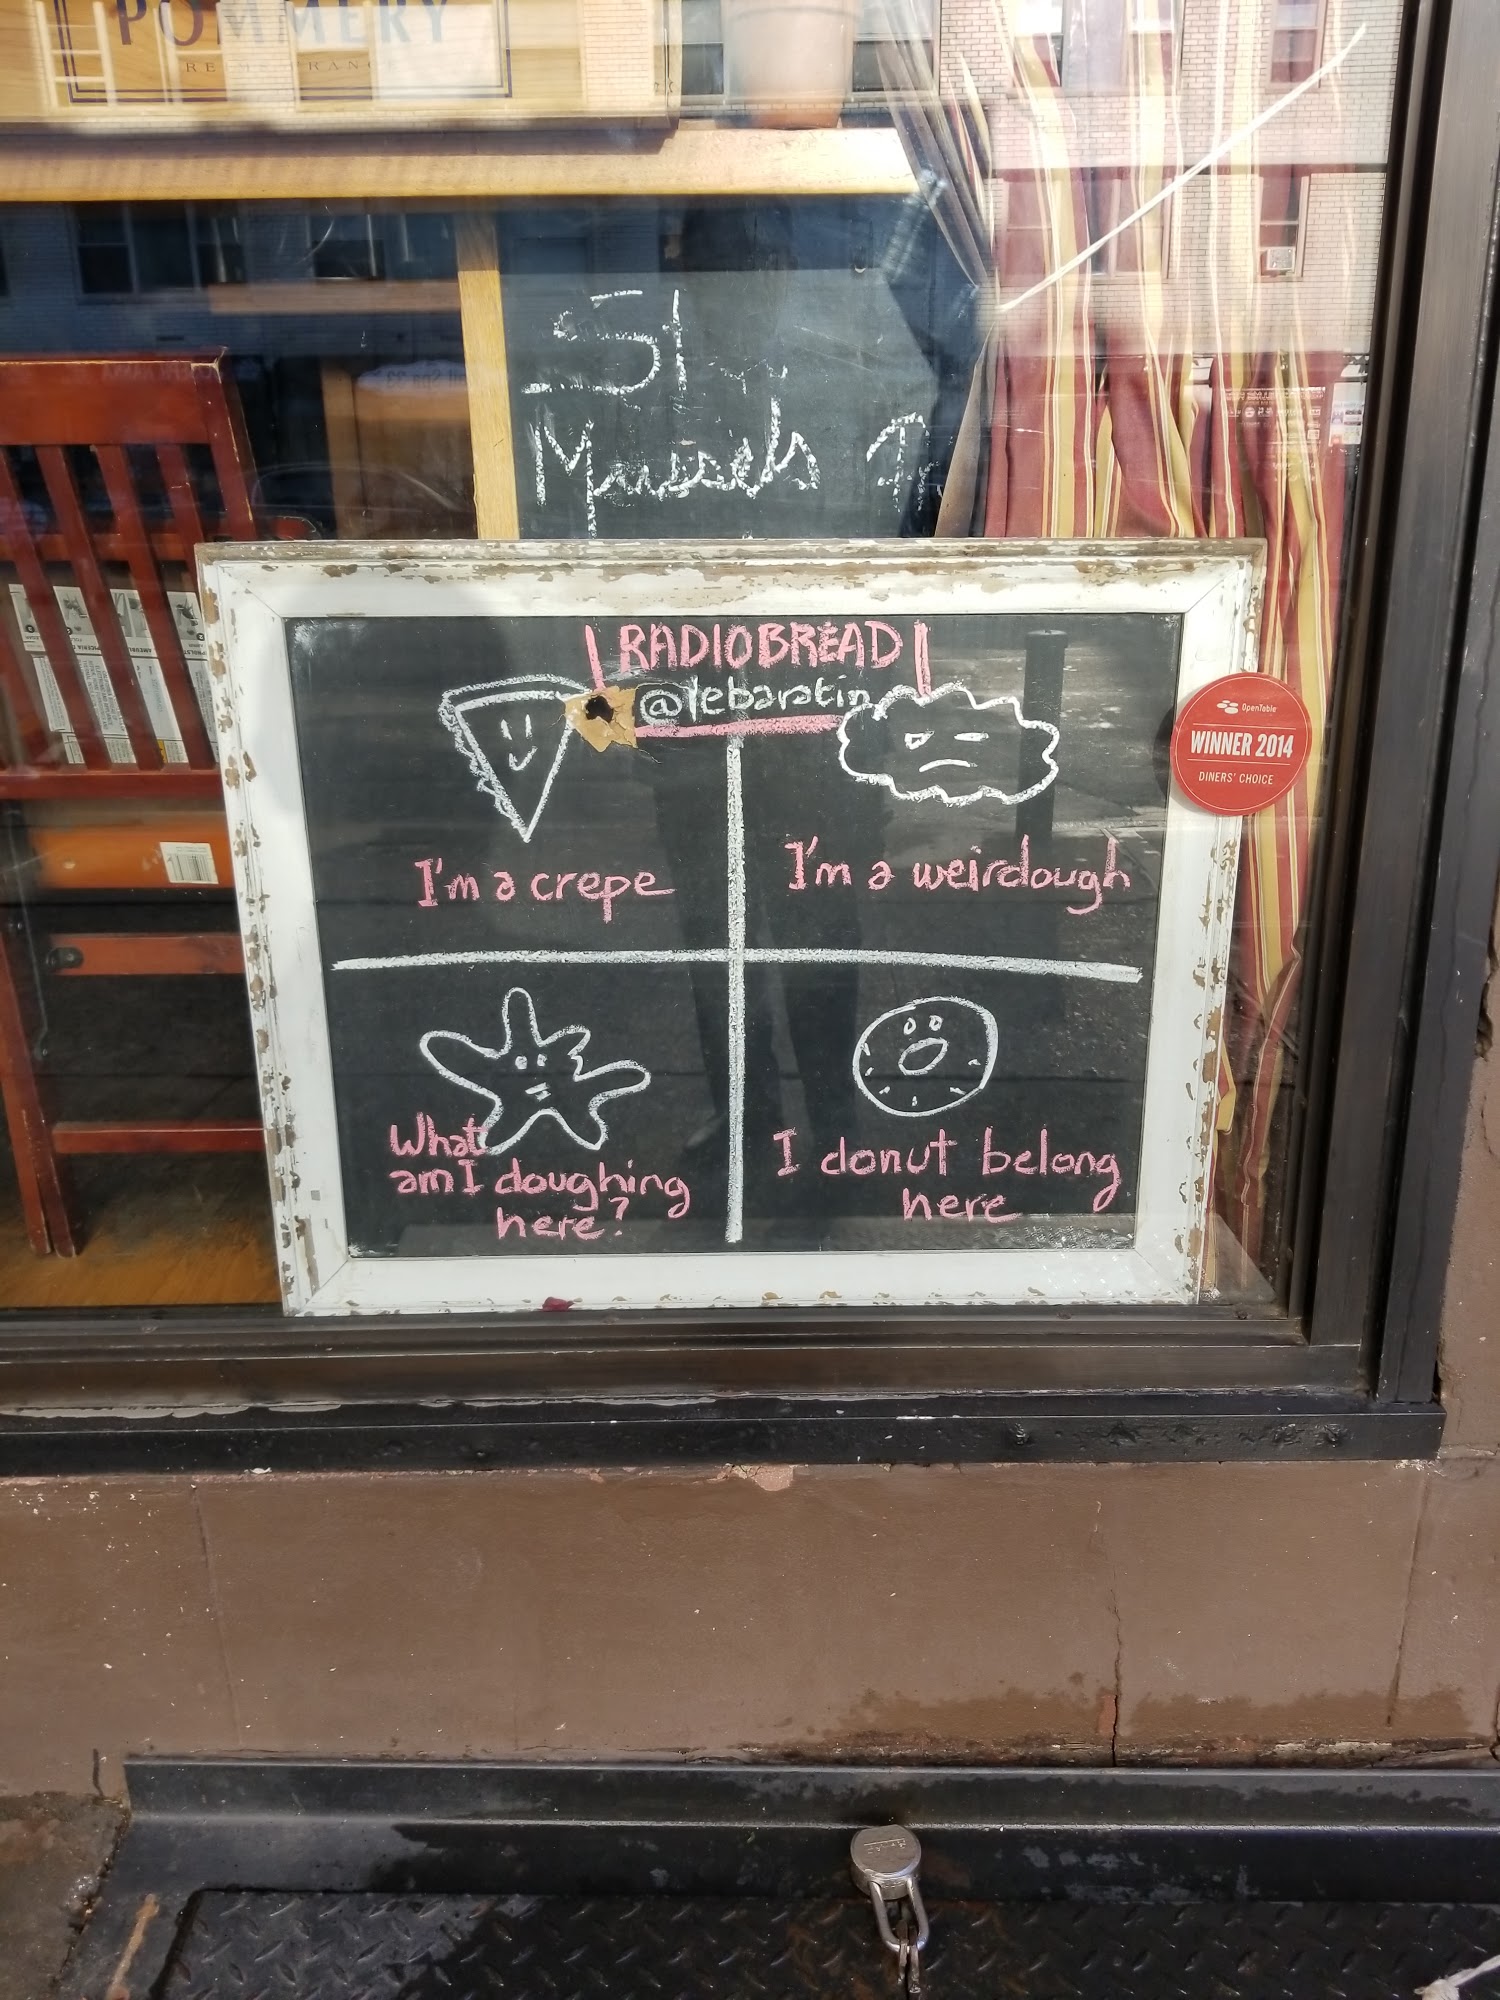 POMMERY
$1
Mussels
RADIOBREAD
@lebaratin
I'm a crepe
I'm a weirdough
What
am I doughing
here?
I donut belong
here
OpenTable
WINNER 2014
DINERS' CHOICE